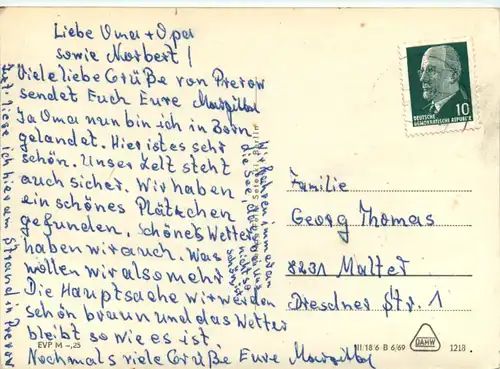 Liebe Oma + Opa
sowie Norbert!
Viele liebe Grüße von Prerow
sendet Euch Eure
Ja Oma nun bin ich in Born
gelandet. Hier ist es sehr
schön. Unser Zelt steht
auch sicher. Wir haben
ein schönes Plätzchen
gefunden. Schönes Wetter
haben wir auch. Was
wollen wir also mehr
Die Hauptsache wir werden
schön braun und das Wetter
bleibt so wie es ist.
Nochmals viele Grüße Eure
liege ich hier am Strand in Prerow
Wir fahren immer an
die See,
DEUTSCHE
DEMOKRATISCHE REPUBLIK
10
Familie
Georg Thomas
8231 Malter
Dresdner Str. 1
EVP M –,25
III/18/6 B 6/69
DAHW
1218